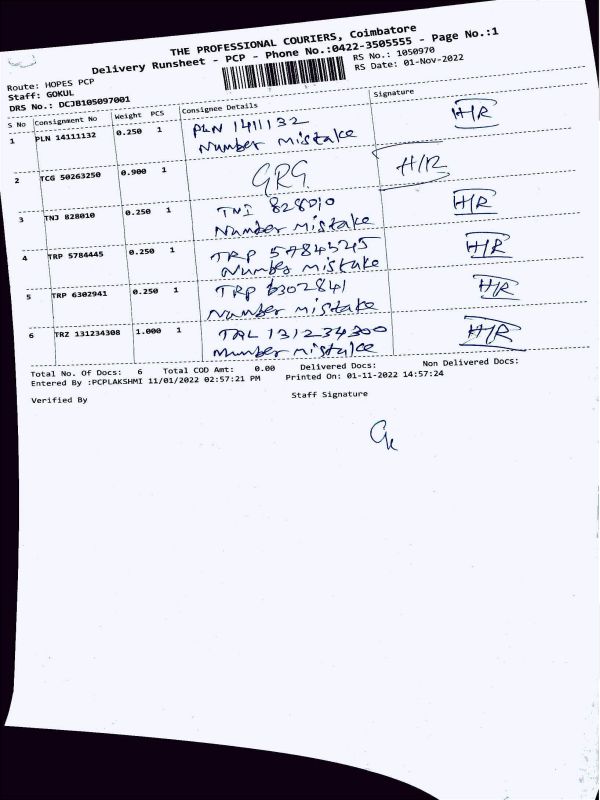 THE PROFESSIONAL COURIERS, Coimbatore
Delivery Runsheet - PCP - Phone No.:0422-3505555 - Page No.:1
Route: HOPES PCP
RS No.: 1050970
Staff: GOKUL
RS Date: 01-Nov-2022
DRS No.: DCJB105097001
S No Consignment No Weight PCS Consignee Details Signature
1 PLN 14111132 0.250 1 PLN 1411132 H/R
Number mistake
2 TCG 50263250 0.900 1 GRG H/R
3 TNJ 828010 0.250 1 TNI 828010 H/R
Number mistake
4 TRP 5784445 0.250 1 TRP 5784545 H/R
Number mistake
5 TRP 6302941 0.250 1 TRP 6302841 H/R
Number mistake
6 TRZ 131234308 1.000 1 TRL 131234300 H/R
Number mistake
Total No. Of Docs: 6 Total COD Amt: 0.00 Delivered Docs: Non Delivered Docs:
Entered By :PCPLAKSHMI 11/01/2022 02:57:21 PM Printed On: 01-11-2022 14:57:24
Verified By Staff Signature